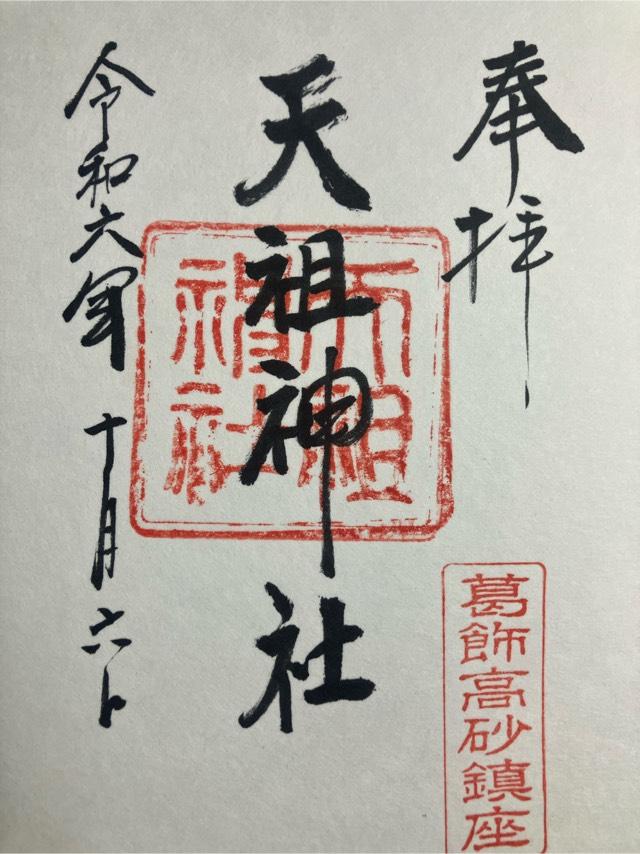 奉拝
葛飾高砂鎮座
天祖神社
天祖神社
令和六年十月六日